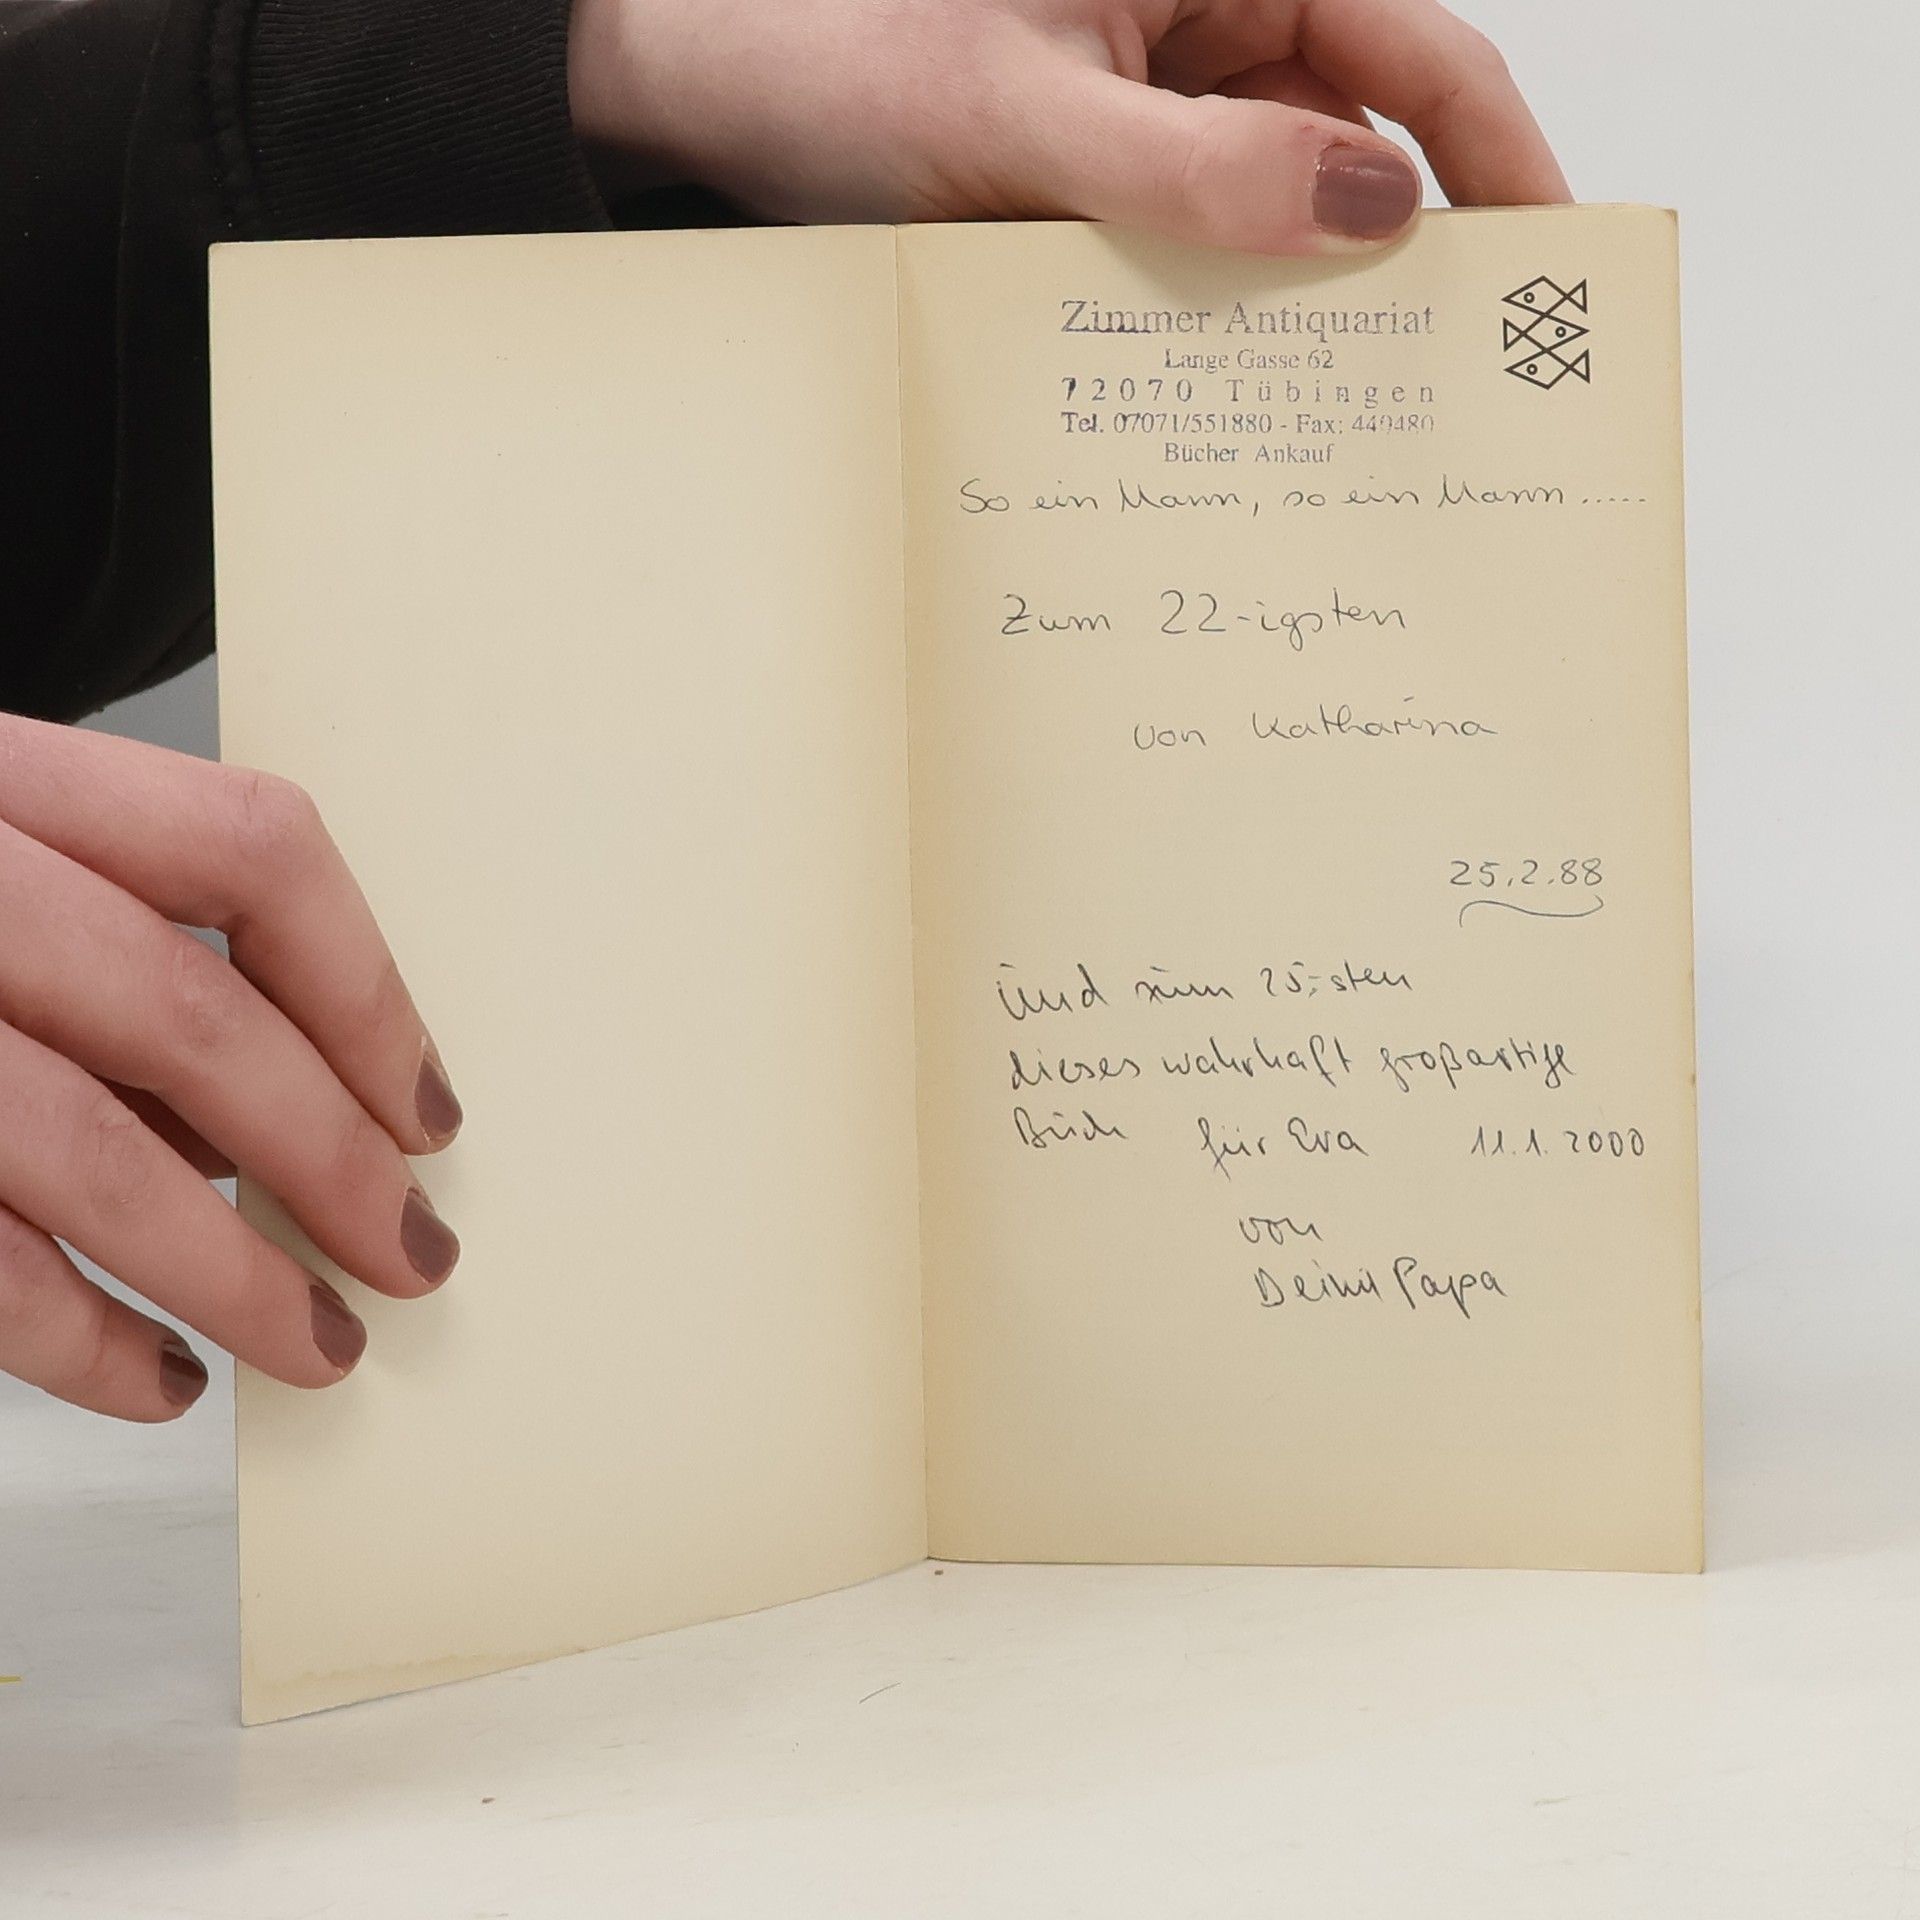 Zimmer Antiquariat
Lange Gasse 62
72070 Tübingen
Tel. 07071/551880 - Fax: 440480
Bücher Ankauf
So ein Mann, so ein Mann.....
Zum 22-igsten
von Katharina
25.2.88
Und zum 25.-sten
dieses wahrhaft großartige
Buch für Eva 11.1.2000
von
Deinem Papa